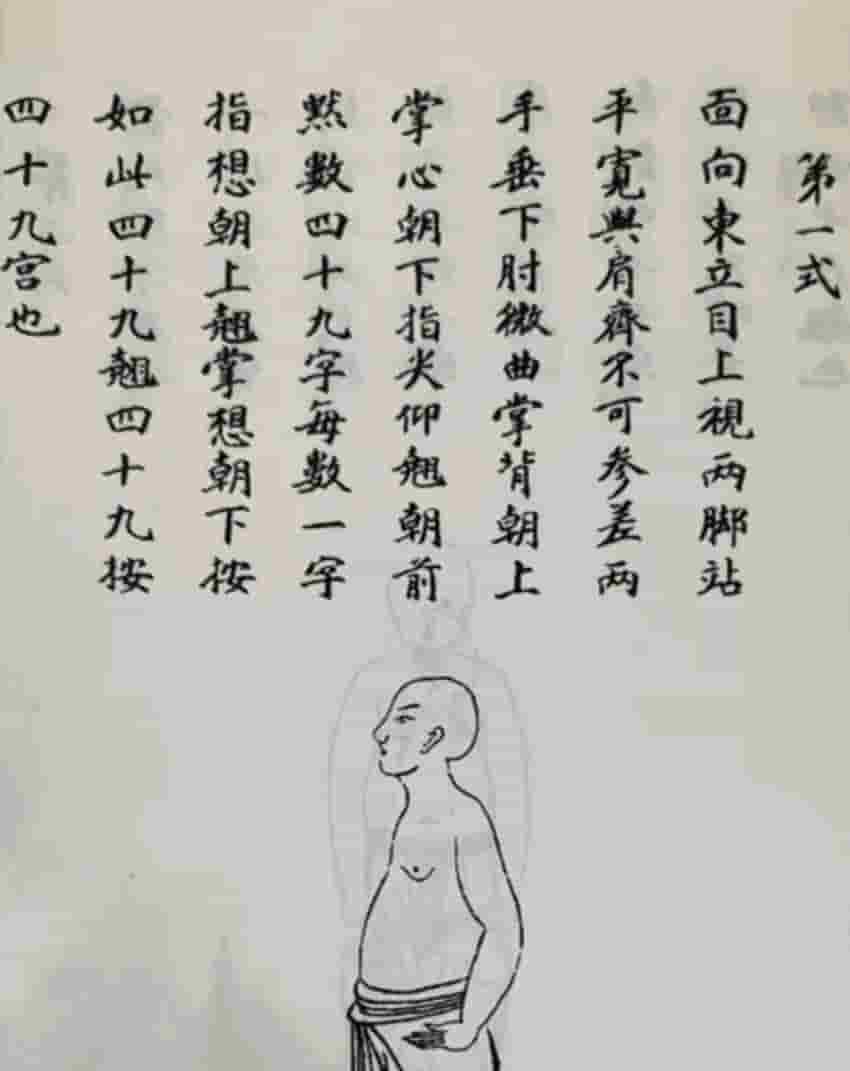 第一式
面向東立目上視两脚站
平寛與肩齊不可参差两
手垂下肘微曲掌背朝上
掌心朝下指尖仰翘朝前
黙數四十九字每數一字
指想朝上翘掌想朝下按
如此四十九翘四十九按
四十九宫也